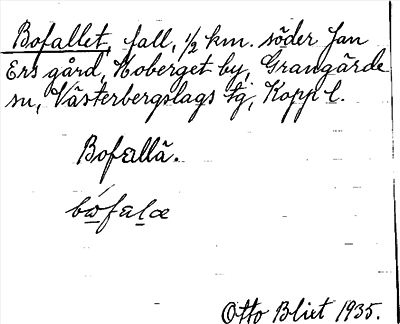 Bofallet, fall, 1/2 km. söder Jan
Ers gård, Moberget by, Grangärde
sn, Västerbergslags tg, Kopp l.
Bofallä.
Otto Blixt 1935.